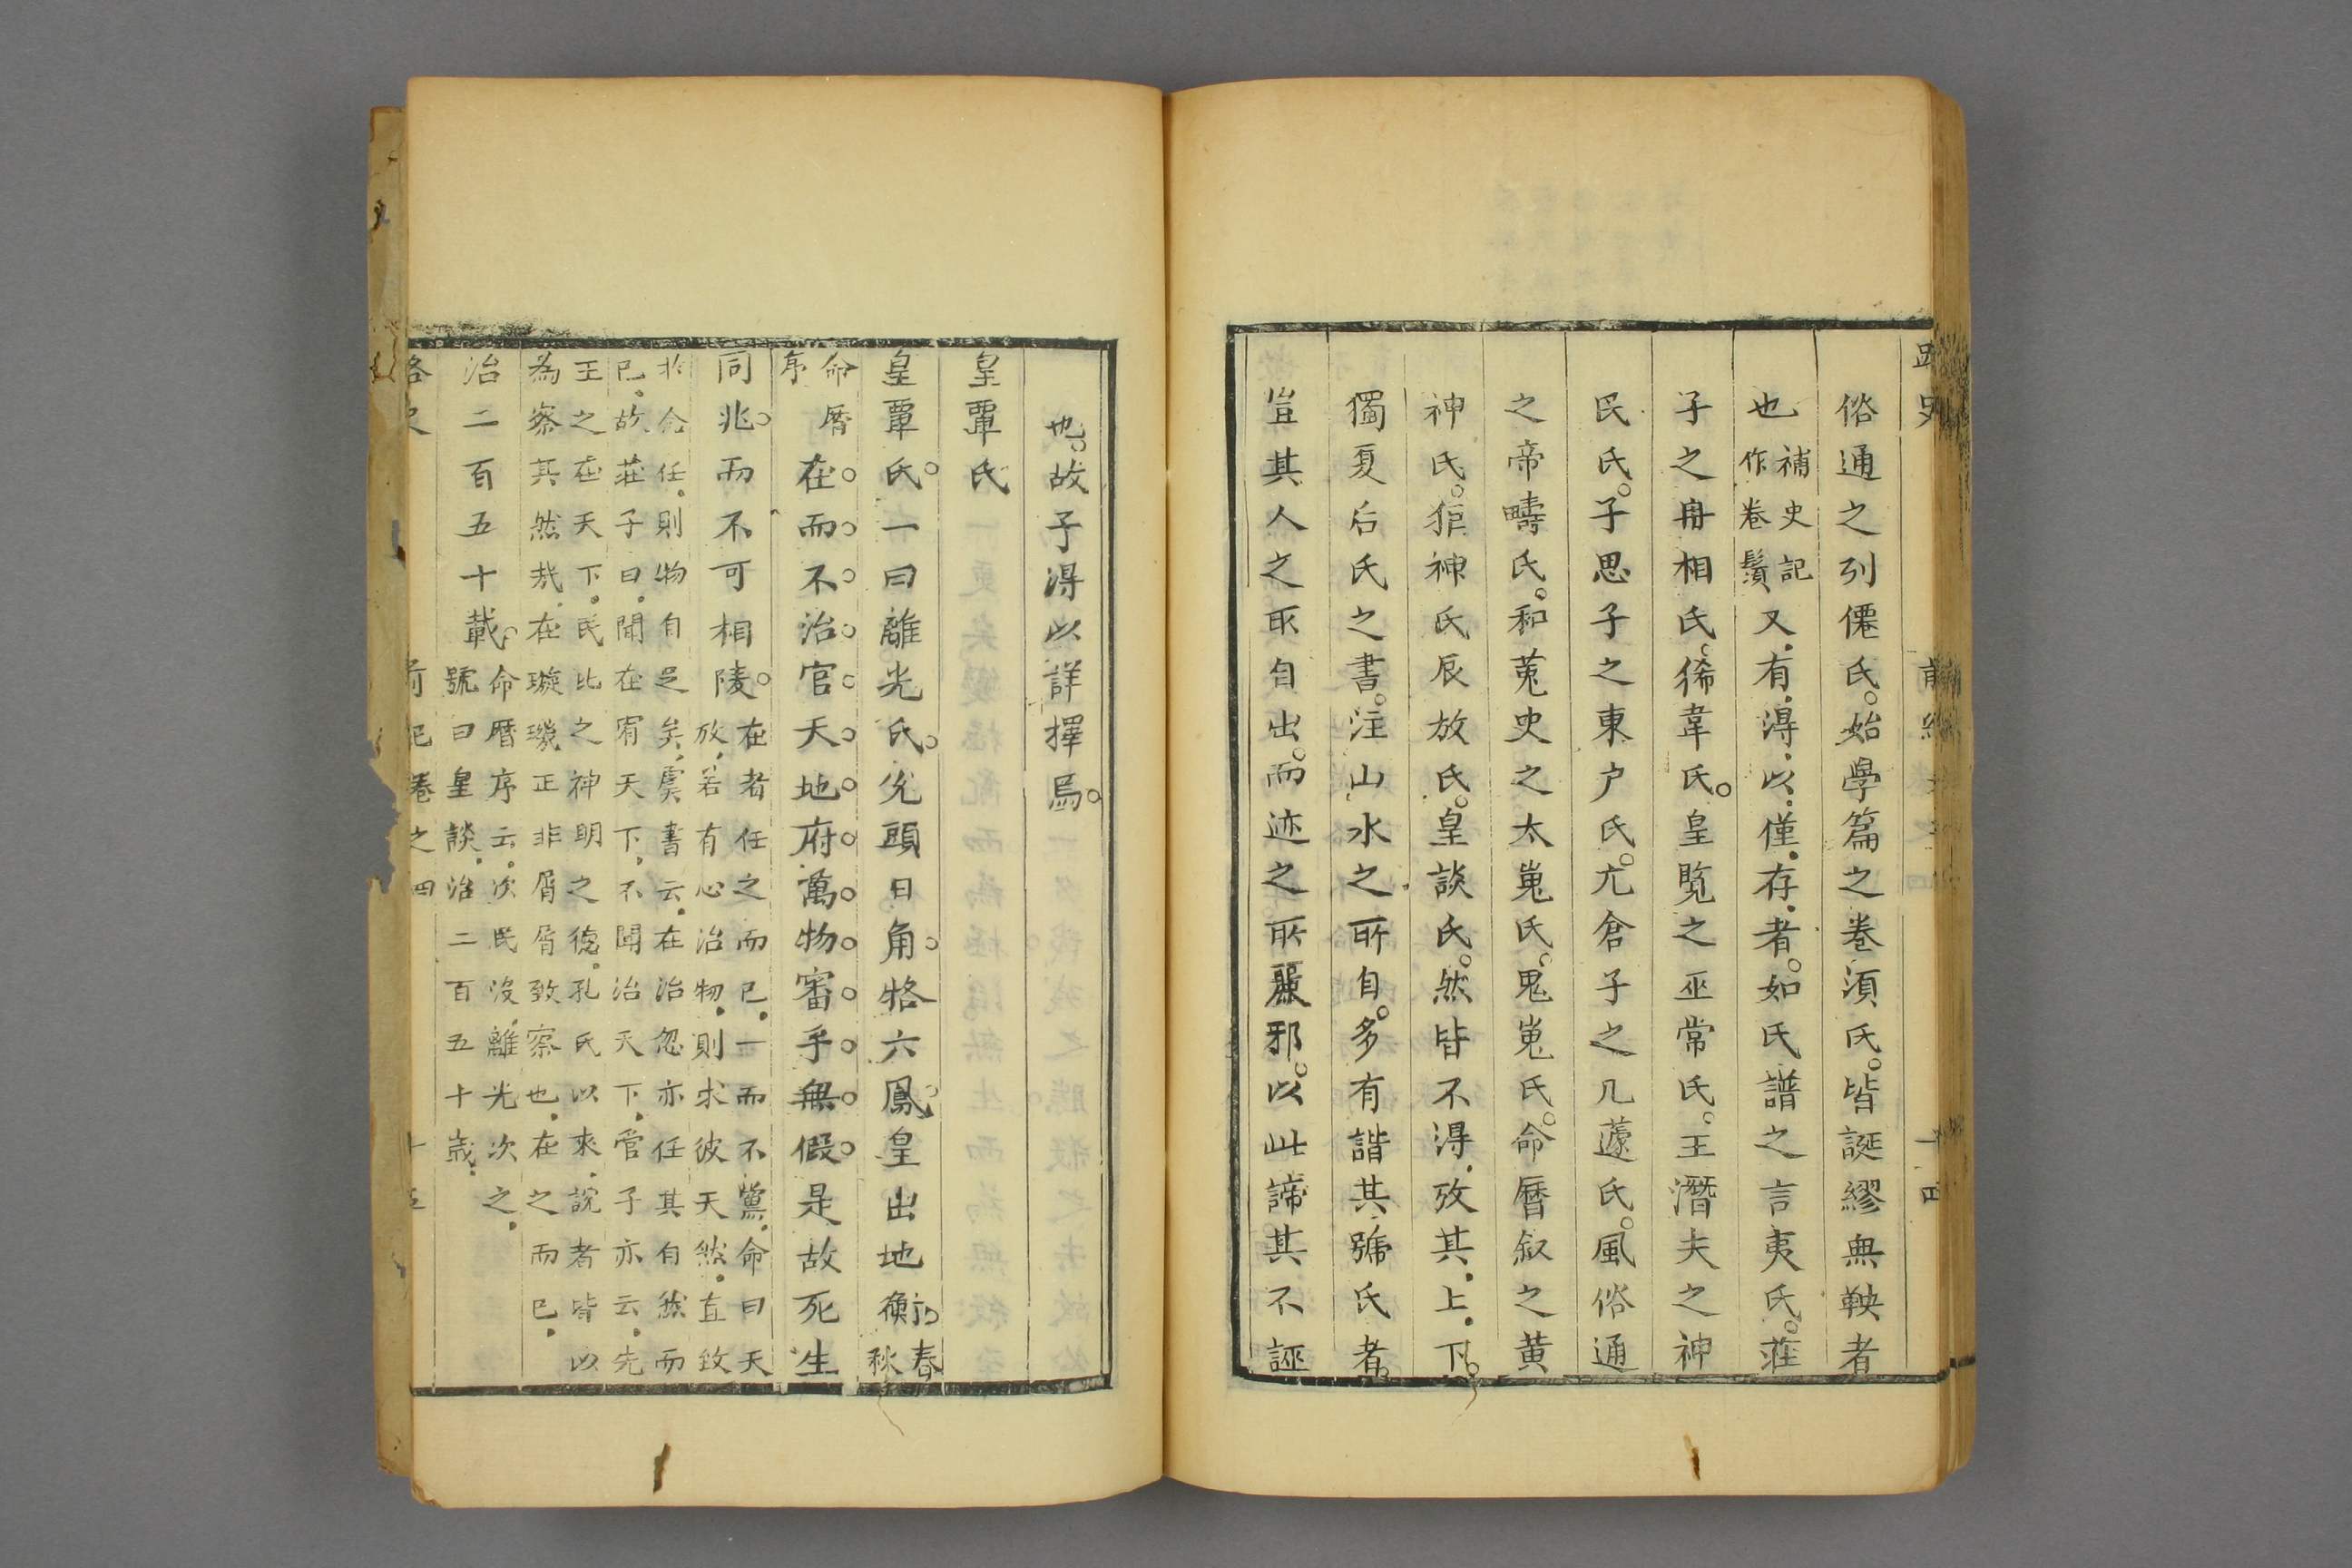 路史 前紀 之四 十四
俗通之列僊氏。始學篇之卷湏氏。皆誕繆無鞅者
也補史記作卷鬚又有淂以僅存者。如氏譜之言夷氏。莊
子之冉相氏。狶韋氏。皇覧之巫常氏。王潛夫之神
民氏。子思子之東户氏。亢倉子之几蘧氏。風俗通
之帝疇氏。和菟史之太嵬氏。鬼嵬氏。命曆叙之黄
神氏。㹯神氏辰放氏。皇談氏。然皆不淂攷其上下。
獨夏后氏之書。注山水之所自。多有諧其號氏者。
豈其人之取自出。而迹之所麗邪。以此諦其不誣
也。故子淂以詳擇焉。
皇覃氏
皇覃氏。一曰離光氏。兊頭日角。格六鳳。皇出地衡。春秋
命曆序在而不治。官天地。府萬物。審乎無假。是故死生
同兆。而不可相陵。在者任之而已。一而不黨。命曰天
放。若有心治物。則求彼天然。直致
於僉任。則物自足矣。虞書云。在治忽亦任其自然而
已。故莊子曰。聞在宥天下。不聞治天下。管子亦云。先
王之在天下。民比之神明之德。孔氏以來。說者皆以
為察其然哉。在璇璣正非屑屑致察也。在之而已。
治二百五十載。命曆序云。次民沒。離光次之。
號曰皇談。治二百五十歳。
路史 前紀卷之四 十五